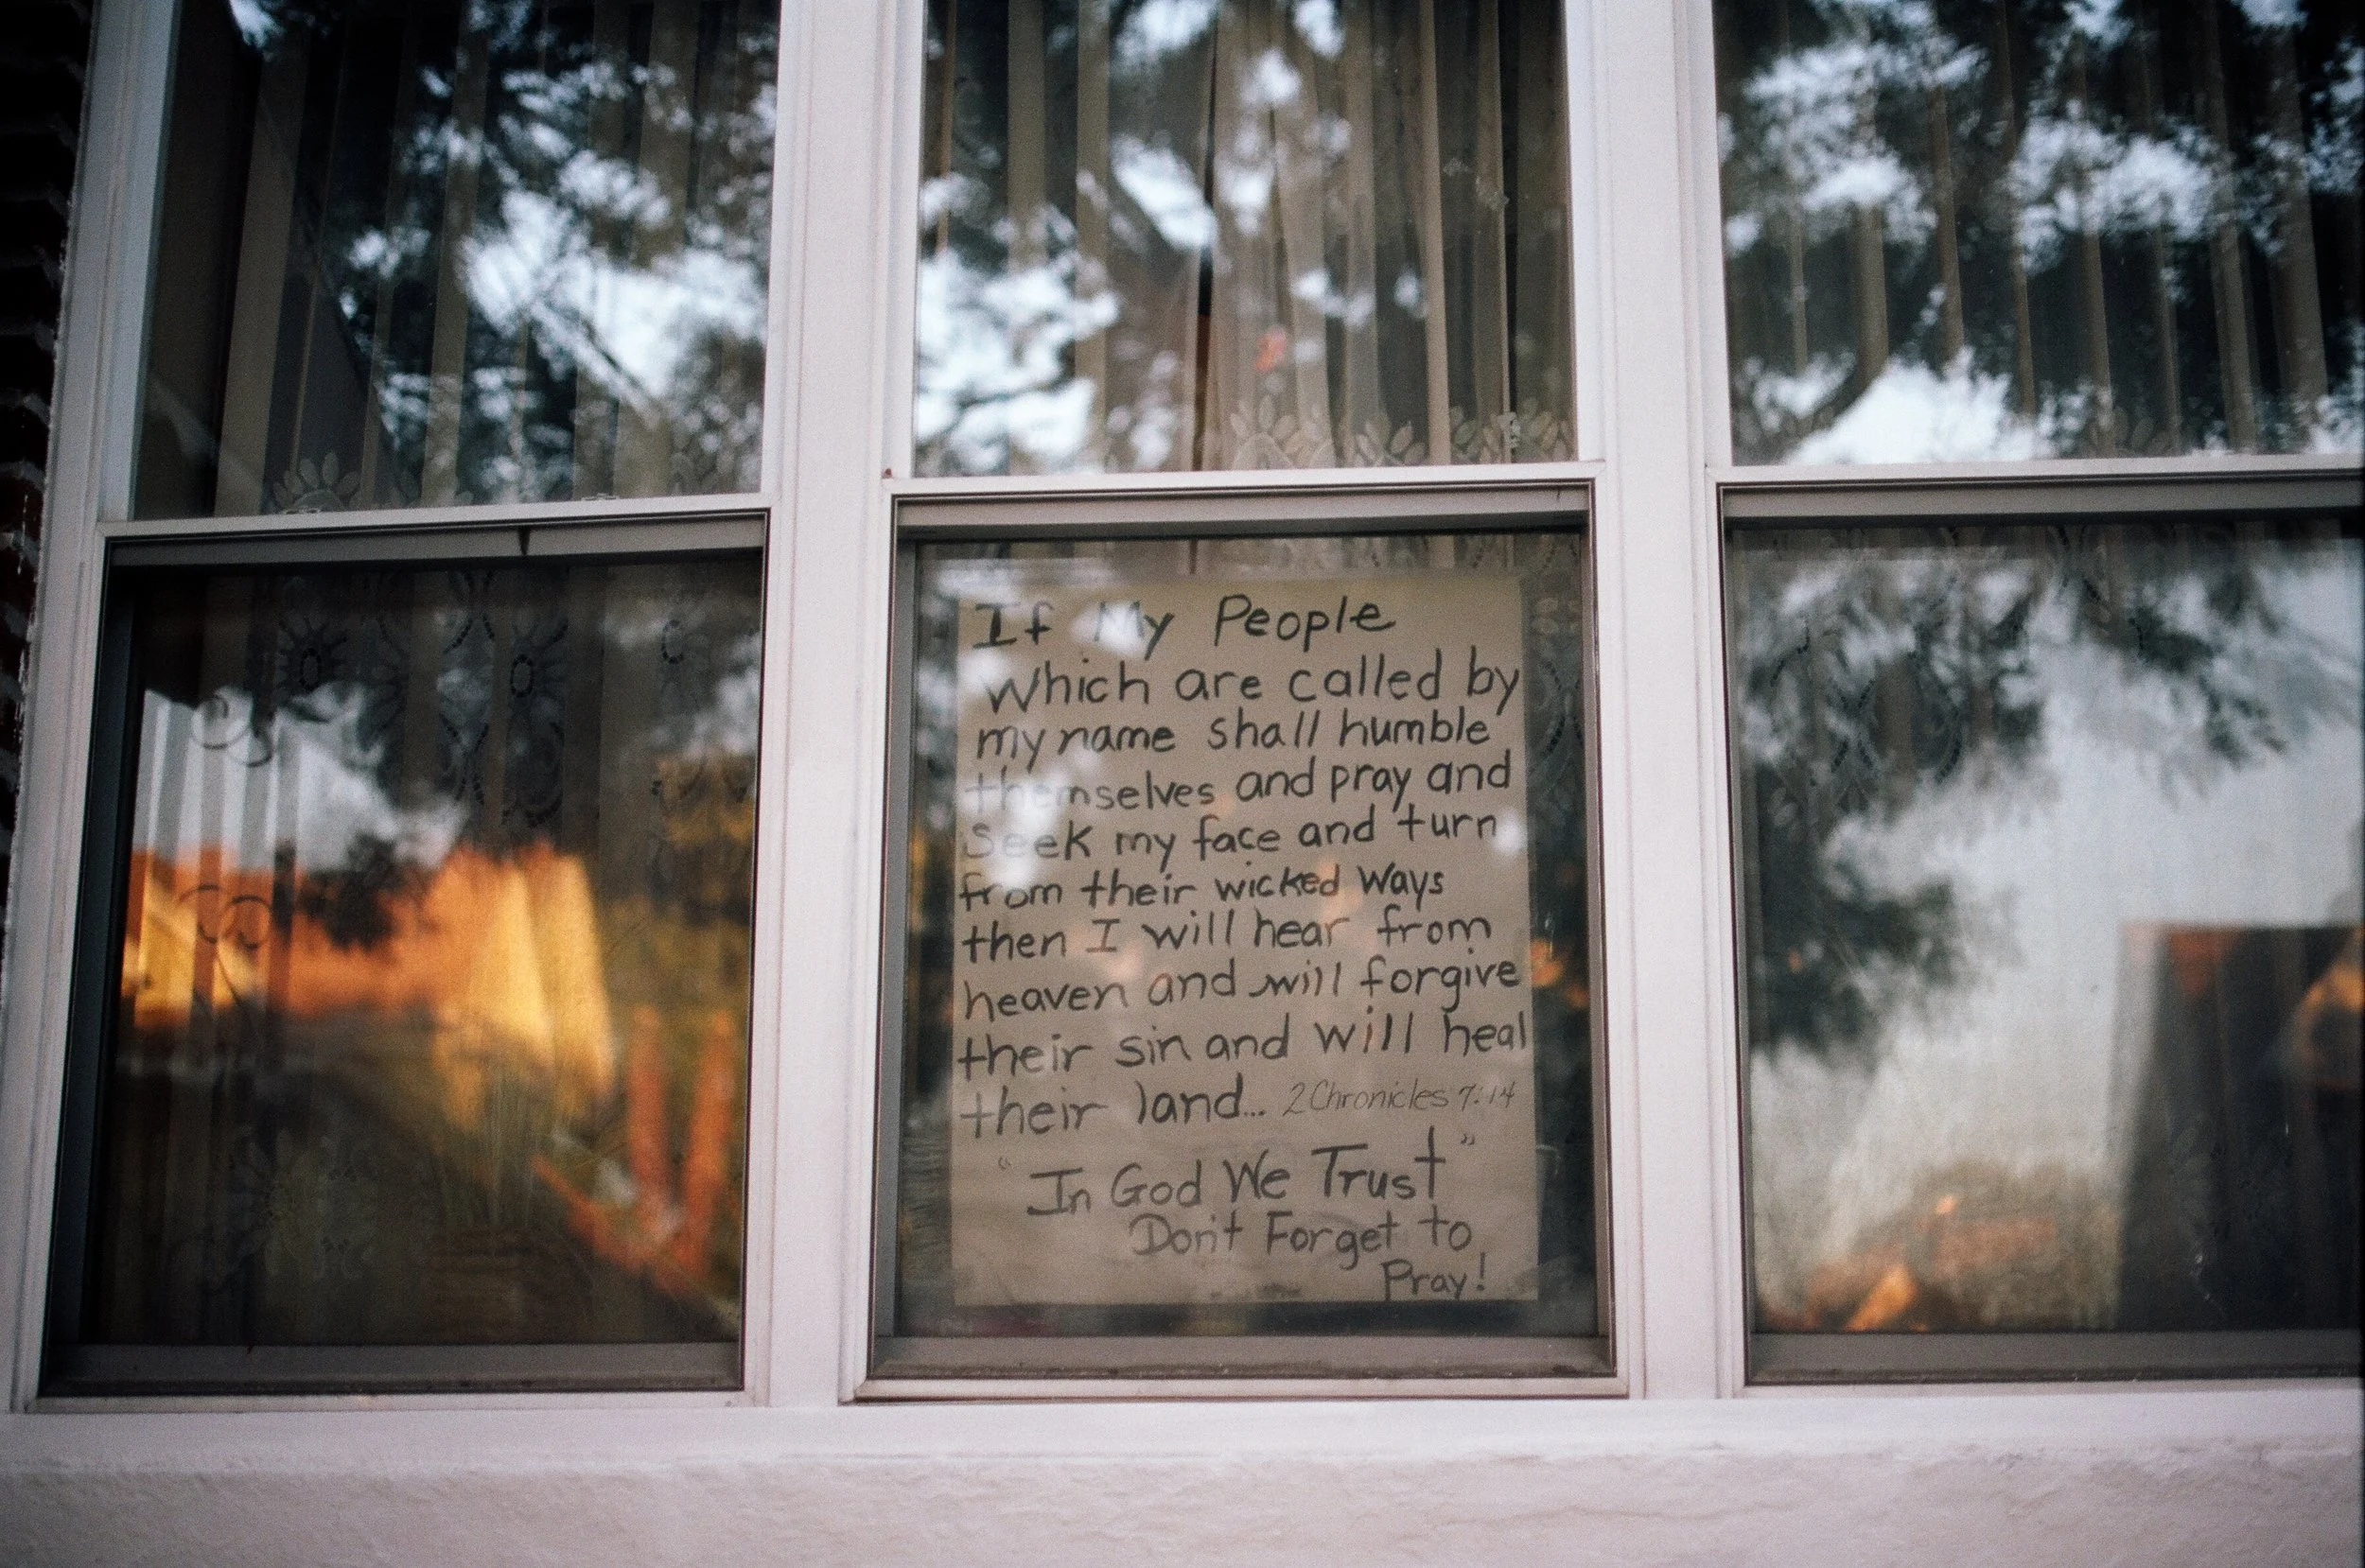 If My People
which are called by
my name shall humble
themselves and pray and
seek my face and turn
from their wicked ways
then I will hear from
heaven and will forgive
their sin and will heal
their land... 2 Chronicles 7:14
"In God We Trust"
Don't Forget to
Pray!